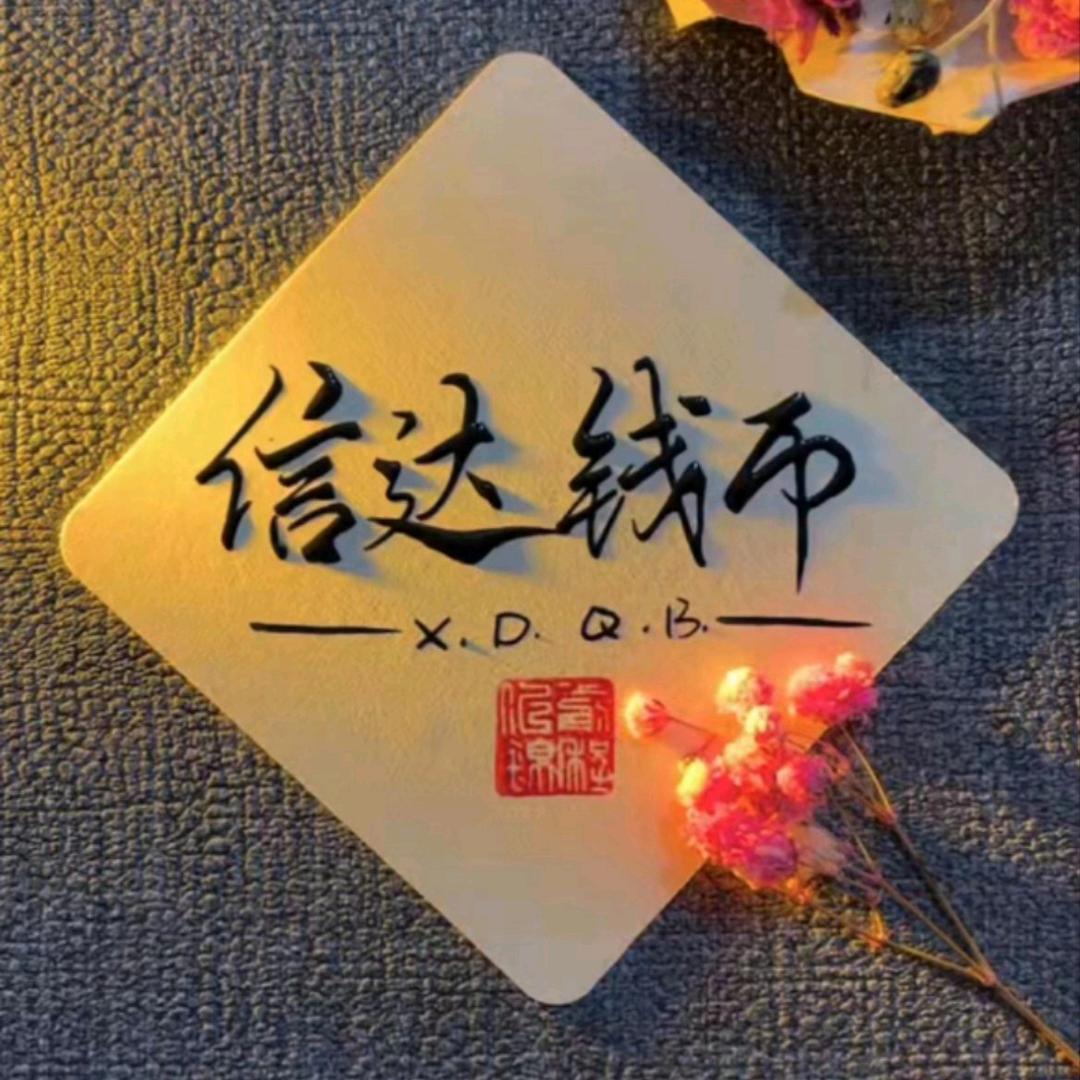 信达钱币
X.D.Q.B.